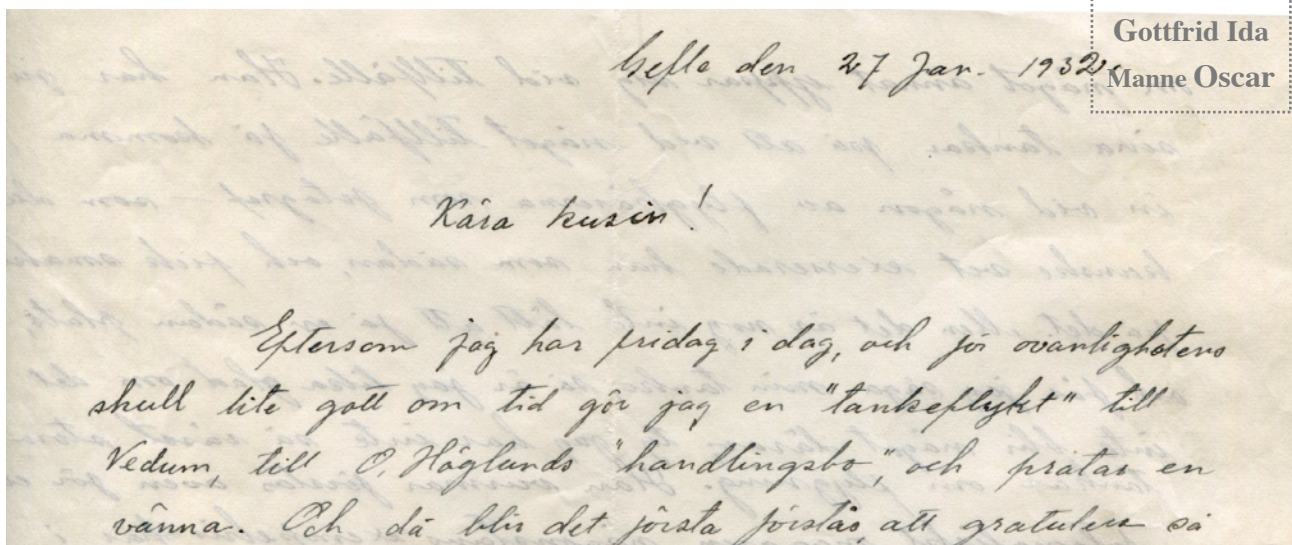 Gottfrid Ida
Manne Oscar
Gefle den 27 Jan. 1932.
Kära kusin!
Eftersom jag har fridag i dag, och för ovanlighetens
skull lite gott om tid gör jag en "tankeflykt" till
Vedum, till O. Höglunds "handlingsbo", och pratar en
vänna. Och då blir det första förstås, att gratulera så